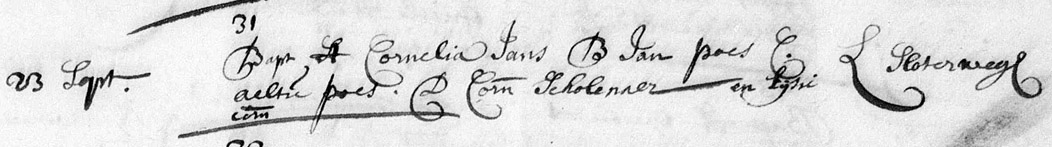 31
23 Sept. Bapt. st Cornelia Jans B Jan poes C L Sloterwegh
aeltie poes. D Corn Scholenaer en tysie
corn